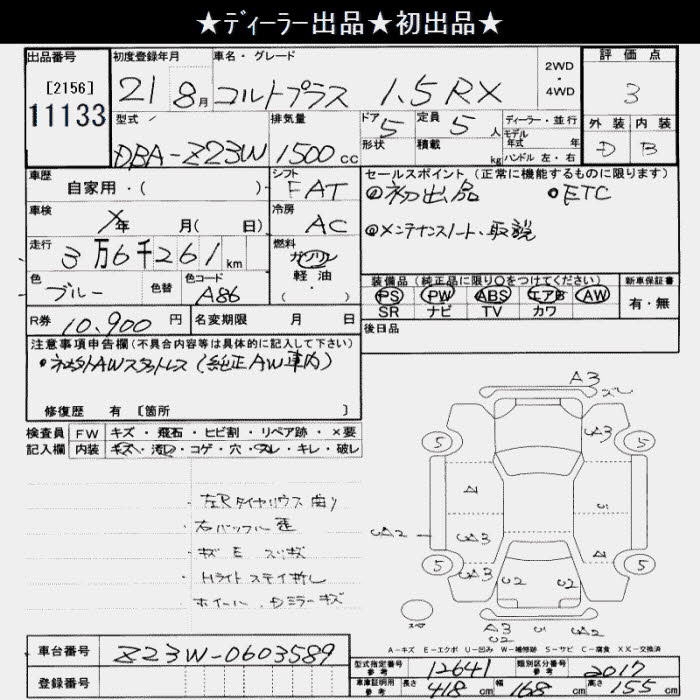 ★ディーラー出品★初出品★
出品番号 初度登録年月 車名・グレード 2WD・4WD 評価点
[2156] 11133
21 8月 コルトプラス 1.5RX 3
型式 排気量 ドア 5 定員 5人 ディーラー・並行 外装 内装
モデル年式 年
DBA-Z23W 1500cc 形状 積載 kg ハンドル 左・右 D B
車歴 シフト セールスポイント(正常に機能するものに限ります)
自家用・( ) FAT ①初出品 ETC
車検 冷房
X年 月( 日) AC メンテナンスノート、取説
走行 燃料
3万6千261km ガソリン
軽油・
色 色替 色コード 装備品(純正品に限り○をつけてください) 新車保証書
ブルー A86 PS PW ABS エアB AW 有・無
SR ナビ TV カワ
R券 10,900円 名変期限 月 日 後日品
注意事項申告欄(不具合内容等は具体的に記入して下さい)
・社外AWスタッドレス(純正AW車内)
修復歴 有 [箇所 ]
検査員 FW キズ・飛石・ヒビ割・リペア跡・×要
記入欄 内装 キズ・汚レ・コゲ・穴・スレ・キレ・破レ
A3
A3
5 5
A2
A3
A3
5 5
U2 U2
A3 U1 A2
U2
Hライトステイ折レ
ホイール、Dミラーキズ
A-キズ E-エクボ U-凹み W-補修跡 S-サビ C-腐食 XX-交換済
車台番号 Z23W-0603589
型式指定番号 参考 12641 類別区分番号 参考 2017
登録番号
車庫証明用 参考 長さ 418cm 幅 168cm 高さ 155cm